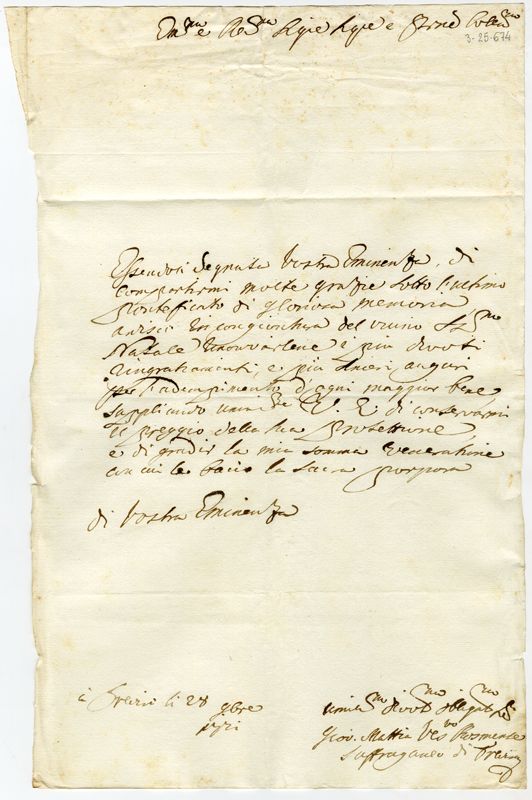 Em.mo e Re.mo Sig.re Sig.re e P.rone Col.mo
3-25-674
Essendosi degnata Vostra Eminenza, di
compartirmi molte grazie sotto l'ultimo
Ponteficato di gloriosa memoria
ardisco in congiontura del vicino SS.mo
Natale rinovarlene i più divoti
ringratiamenti, e più sinceri auguri
per l'adempimento d'ogni maggior bene
supplicando V. E. di conservarmi
il preggio della sua Protettione,
e di gradir la mia somma veneratione
con cui le bacio la Sacra Porpora
di Vostra Eminenza
à li 28 9bre
1721
Umil.mo divot.mo obligat.mo
Giov. Mattia Ves.vo
Suffraganeo di